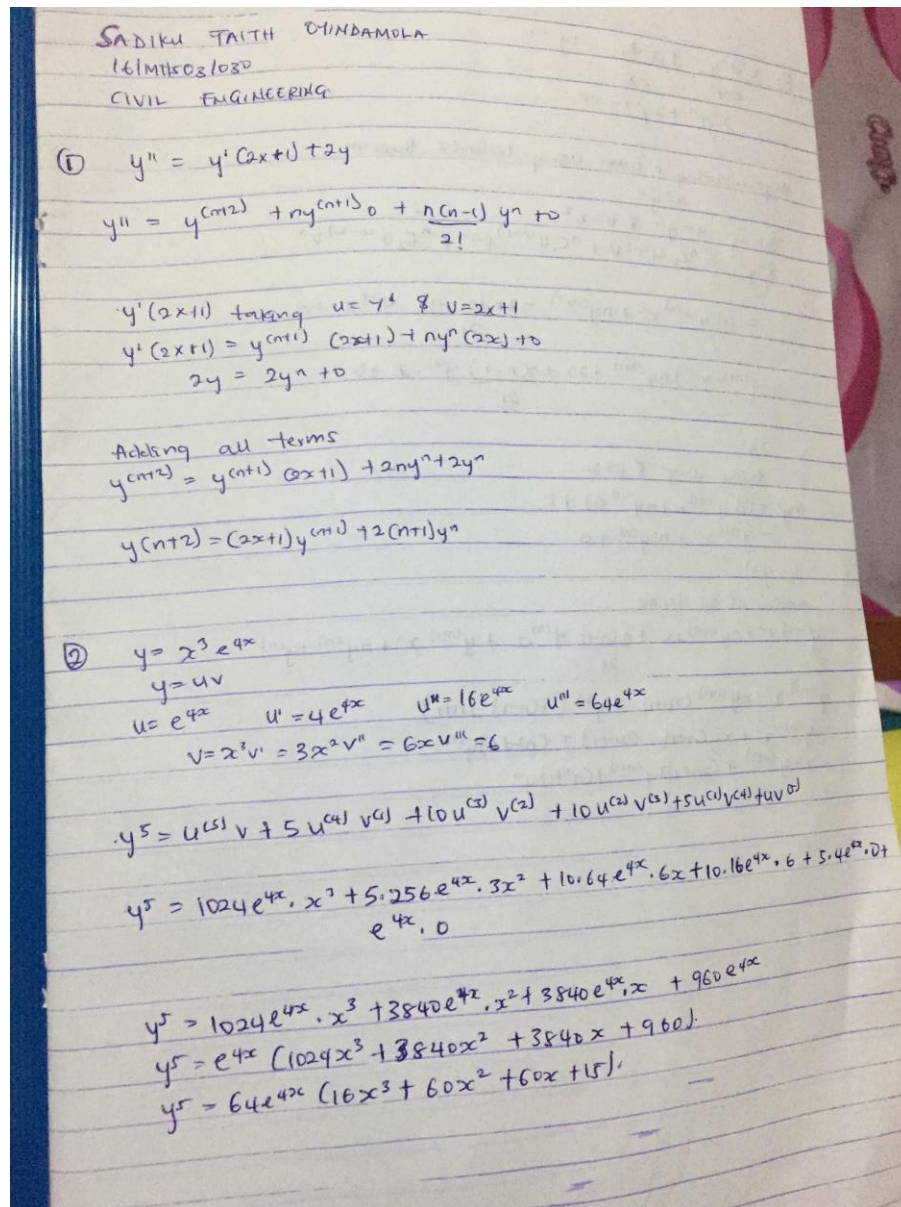 SADIKU TAITH OYINDAMOLA
16/MHS03/030
CIVIL ENGINEERING
① y" = y' (2x+1) + 2y
y" = y^(n+2) + ny^(n+1) 0 + n(n-1)/2! y^n + 0
y' (2x+1) taking u = y' & v = 2x+1
y' (2x+1) = y^(n+1) (2x+1) + ny^n (2x) + 0
2y = 2y^n + 0
Adding all terms
y^(n+2) = y^(n+1) (2x+1) + 2ny^n + 2y^n
y(n+2) = (2x+1) y^(n+1) + 2(n+1)y^n
② y = x^3 e^4x
y = uv
u = e^4x u' = 4e^4x u" = 16e^4x u''' = 64e^4x
v = x^3 v' = 3x^2 v" = 6x v''' = 6
y^5 = u^(5) v + 5 u^(4) v^(1) + 10 u^(3) v^(2) + 10 u^(2) v^(3) + 5u^(1) v^(4) + uv^(5)
y^5 = 1024e^4x . x^3 + 5.256e^4x . 3x^2 + 10.64e^4x . 6x + 10.16e^4x . 6 + 5.4e^4x . 0 +
e^4x . 0
y^5 = 1024e^4x . x^3 + 3840e^4x . x^2 + 3840e^4x . x + 960e^4x
y^5 = e^4x (1024x^3 + 3840x^2 + 3840x + 960).
y^5 = 64e^4x (16x^3 + 60x^2 + 60x + 15).